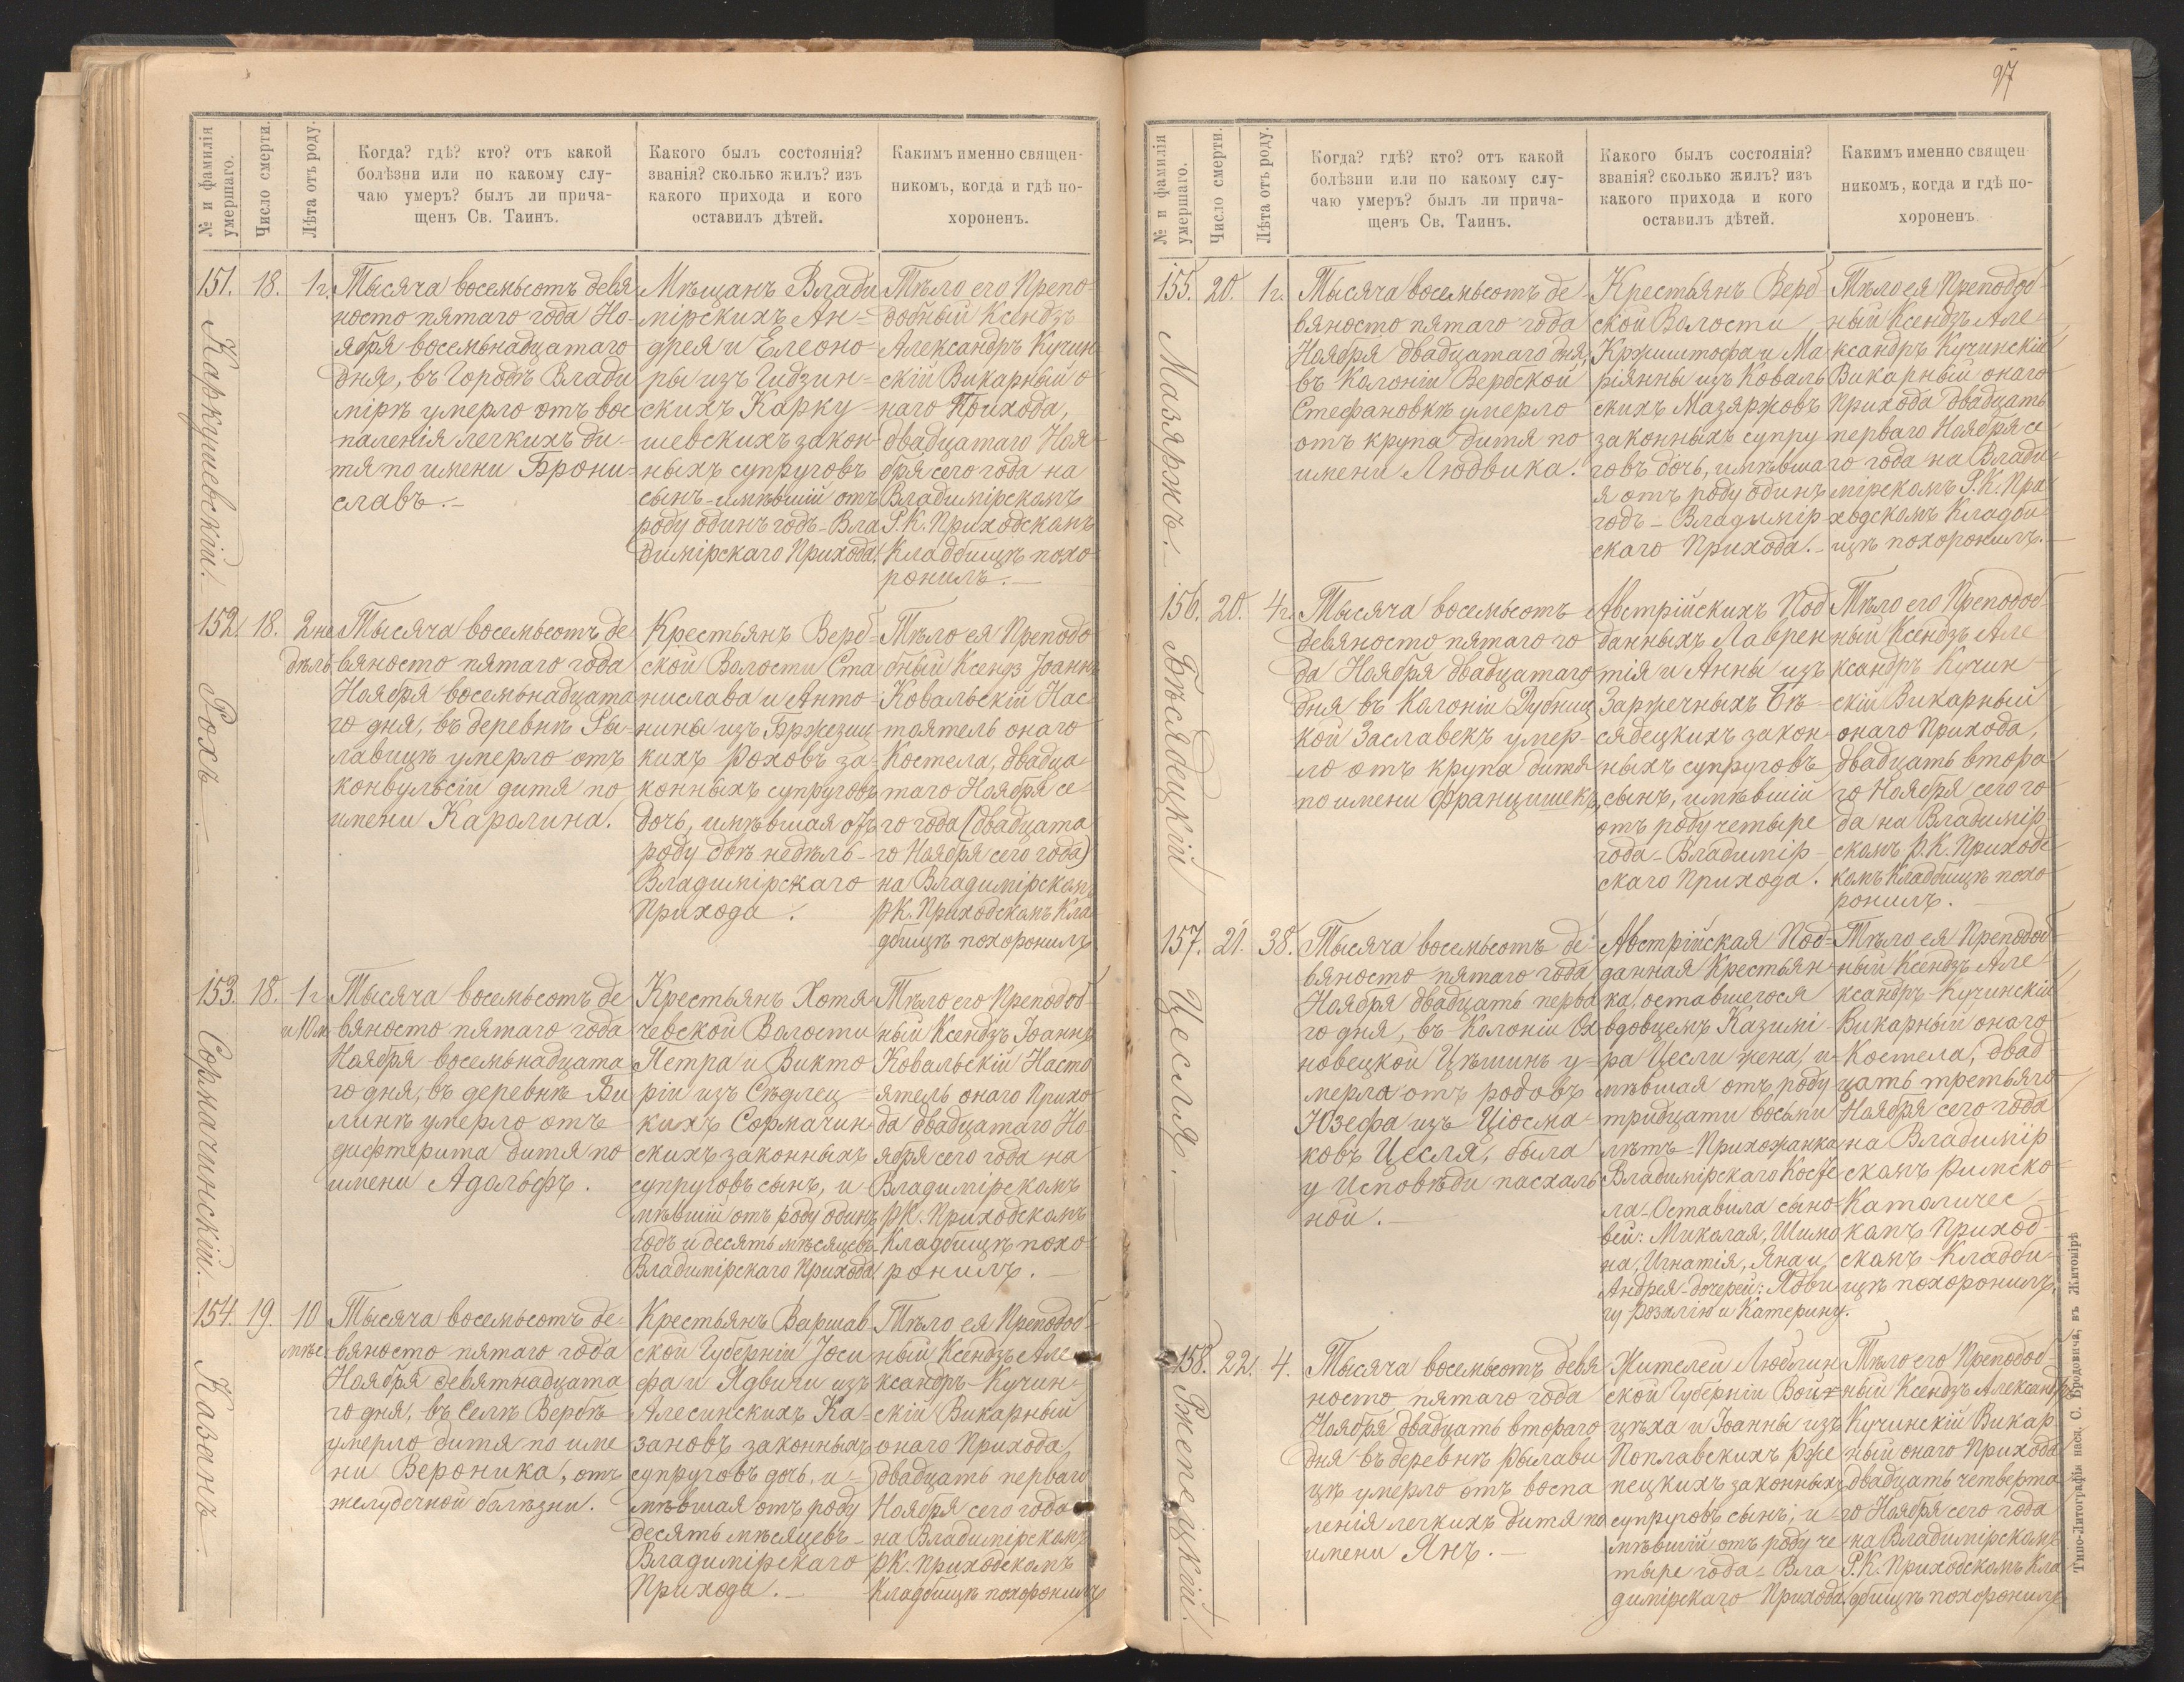 97
№ и фамилія умершаго.
Число смерти.
Лѣта отъ роду.
Когда? гдѣ? кто? отъ какой
болѣзни или по какому слу-
чаю умеръ? былъ ли прича-
щенъ Св. Таинъ.
Какого былъ состоянія?
званія? сколько жилъ? изъ
какого прихода и кого
оставилъ дѣтей.
Какимъ именно священ-
никомъ, когда и гдѣ по-
хороненъ.
151. Каркушевскій.
18.
1 г.
Тысяча восемьсотъ девя
носто пятаго года Но-
ября восемьнадцатаго
дня, въ Городѣ Влади
мірѣ умерло отъ вос
паленія легкихъ ди-
тя по имени Брони-
славъ.-
Мѣщанъ Влади
мірскихъ Ан-
дрея и Елеоно-
ры изъ Гидзин-
скихъ Карку-
шевскихъ закон-
ныхъ супруговъ
сынъ-имѣвшій отъ
роду одинъ годъ-Вла
димірскаго Прихода.
Тѣло его Препо-
добный Ксендзъ
Александръ Кучин
скій Викарный о
наго Прихода,
двадцатаго Ноя-
бря сего года на
Владимірскомъ
Р.К. Приходскомъ
Кладбищѣ похо-
ронилъ.-
152. Рохъ.
18.
2 не
дѣль
Тысяча восемьсотъ де
вяносто пятаго года
Ноября восемьнадцата
го дня, въ деревнѣ Ры-
лавицѣ умерло отъ
конвульсіи дитя по
имени Каролина.
Крестьянъ Верб-
ской Волости Ста
нислава и Анто-
нины изъ Бржезиц
кихъ Роховъ за-
конныхъ супруговъ
дочь, имѣвшая отъ
роду двѣ недѣли-
Владимірскаго
Прихода.
Тѣло ея Преподо
бный Ксендз Іоаннъ
Ковальскій Нас-
тоятель онаго
Костела, двадца
таго Ноября се-
го года (двадцата
го Ноября сего года)
на Владимірскомъ
РК. Приходскомъ Кла
дбищѣ похоронилъ
153. Сормачинскій.
18.
1 г
и 10 м.
Тысяча восемьсотъ де
вяносто пятаго года
Ноября восемьнадцата
го дня, въ деревнѣ Би
линѣ умерло отъ
дифтерита дитя по
имени Адольфъ.
Крестьянъ Хотя
чевской Волости
Петра и Викто
ріи изъ Сѣдлец
кихъ Сормачин
скихъ законныхъ
супруговъ сынъ, и
мѣвшій отъ роду одинъ
годъ и десять мѣсяцевъ-
Владимірскаго Прихода.
Тѣло его Преподоб
ный Ксендзъ Іоаннъ
Ковальскій Насто
ятель онаго Прихо
да двадцатаго Но-
ября сего года на
Владимірскомъ
РК. Приходскомъ
Кладбищѣ похо-
ронилъ.-
154. Казанъ.
19.
10
мѣс.
Тысяча восемьсотъ де-
вяносто пятаго года
Ноября девятнадцата
го дня, въ Селѣ Вербѣ
умерло дитя по име
ни Вероника, отъ
желудочной болѣзни.
Крестьянъ Варшав
ской Губерніи Іоси
фа и Ядвиги изъ
Алесинскихъ Ка-
зановъ законныхъ
супруговъ дочь, и-
мѣвшая отъ роду
десять мѣсяцевъ-
Владимірскаго
Прихода.-
Тѣло ея Преподоб-
ный Ксендзъ Але-
ксандръ-Кучин-
скій Викарный
онаго Прихода,
двадцать перваго
Ноября сего года
на Владимірскомъ
РК. Приходскомъ
Кладбищѣ похоронилъ
№ и фамилія умершаго.
Число смерти.
Лѣта отъ роду.
Когда? гдѣ? кто? отъ какой
болѣзни или по какому слу-
чаю умеръ? былъ ли прича-
щенъ Св. Таинъ.
Какого былъ состоянія?
званія? сколько жилъ? изъ
какого прихода и кого
оставилъ дѣтей.
Какимъ именно священ-
никомъ, когда и гдѣ по-
хороненъ
155. Мазяржъ.
20.
1 г.
Тысяча восемьсотъ де
вяносто пятаго года
Ноября двадцатаго дня,
въ Колоніи Вербской
Стефановкѣ умерло
отъ крупа дитя по
имени Людвика.
Крестьянъ Верб
ской Волости
Кржиштофа и Ма
ріянны изъ Коваль
скихъ Мазяржовъ
законныхъ супру
говъ дочь, имѣвша
я отъ роду одинъ
годъ-Владимір
скаго Прихода.-
Тѣло ея Преподоб-
ный Ксендзъ Але-
ксандръ Кучинскій
Викарный онаго
Прихода двадцать
перваго Ноября се
го года на Влади-
мірскомъ Р.К. При
ходскомъ Кладби
щѣ похоронилъ.-
156. Бѣсядецкій
20.
4 г.
Тысяча восемьсотъ
девяносто пятаго го
да Ноября двадцатаго
дня въ Колоніи Дубниц
кой Заславекъ умер-
ло отъ крупа дитя
по имени Францишекъ,
Австрійскихъ Под
данныхъ Лаврен
тія и Анны изъ
Заржечныхъ Бѣ-
сядецкихъ закон-
ныхъ супруговъ
сынъ, имѣвшій
отъ роду четыре
года-Владимір-
скаго Прихода.
Тѣло его Преподоб-
ный Ксендзъ Але
ксандръ Кучин-
скій Викарный
онаго Прихода,
двадцать втора
го Ноября сего го
да на Владимір
скомъ Р.К. Приходс
комъ Кладбищѣ похо
ронилъ.-
157. Цесля.
21.
38.
Тысяча восемьсотъ де-
вяносто пятаго года
Ноября двадцать перва
го дня, въ Колоніи Ох
новецкой Цѣшинъ у-
мерла отъ родовъ
Юзефа изъ Ціосма-
ковъ Цесля, была
у Исповѣди пасхаль
ной.-
Австрійская Под-
данная Крестьян-
ка, оставшегося
вдовцемъ Казимі-
ра Цесли жена, и-
мѣвшая отъ роду
тридцати восьми
лѣтъ-Прихожанка
Владимірскаго Косте
ла-Оставила сыно
вей: Миколая, Шимо
на, Игнатія, Яна и
Андрея-дочерей: Ядви
гу Розалію и Катерину.
Тѣло ея Преподоб
ный Ксендзъ Але
ксандръ-Кучинскій
Викарный онаго
Костела, двад-
цать третьяго
Ноября сего года
на Владимір
скомъ Римско-
Католичес-
комъ Приход-
скомъ Кладби-
щѣ похоронилъ.
158. Ржепецкій.
22.
4.
Тысяча восемьсотъ девя
носто пятаго года
Ноября двадцать втораго
дня въ деревнѣ Рылави
цѣ умерло отъ воспа
ленія легкихъ дитя по
имени Янъ.-
Жителей Люблин
ской Губерніи Вой-
цѣха и Іоанны изъ
Поплавскихъ Рже
пецкихъ законныхъ
супруговъ сынъ, и-
мѣвшій отъ роду че
тыре года-Вла
димірскаго Прихода.
Тѣло его Преподоб
ный Ксендзъ Александръ
Кучинскій Викар
ный онаго Прихода
двадцать четверта
го Ноября сего года
на Владимірскомъ
Р.К. Приходскомъ Кла
дбищѣ похоронилъ
Типо-Литографія насл. С. Бродовича, въ Житомірѣ